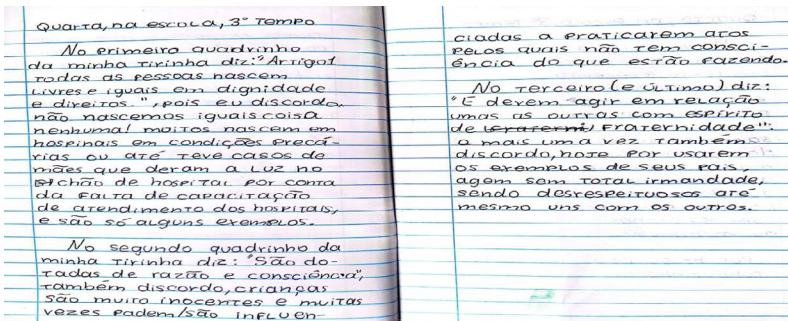 Quarta, na escola, 3º Tempo
No primeiro quadrinho
da minha Tirinha diz: "Artigo1
Todas as pessoas nascem
livres e iguais em dignidade
e direitos.", pois eu discordo,
não nascemos iguais coisa
nenhuma! muitos nascem em
hospitais em condições precá-
rias ou até teve casos de
mães que deram a luz no
chão de hospital por conta
da falta de capacitação
de atendimento dos hospitais,
e são só alguns exemplos.
No segundo quadrinho da
minha Tirinha diz: "São do-
tadas de razão e consciência",
também discordo, crianças
são muito inocentes e muitas
vezes podem/são influen-
ciadas a praticarem atos
pelos quais não tem consci-
ência do que estão fazendo.
No terceiro (e último) diz:
"E devem agir em relação
umas as outras com espírito
de fraternidade":
o mais uma vez também
discordo, hoje por usarem
os exemplos de seus pais,
agem sem total irmandade,
sendo desrespeituosos até
mesmo uns com os outros.